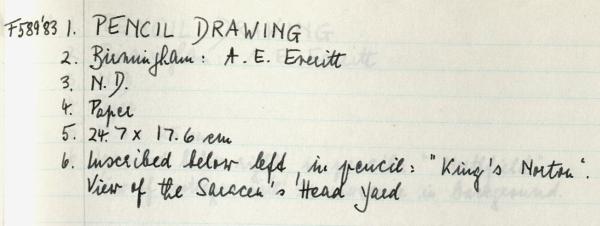 F589'83 1. PENCIL DRAWING
2. Birmingham: A. E. Everitt
3. N.D.
4. Paper
5. 24.7 x 17.6 cm
6. Inscribed below left, in pencil: "King's Norton".
View of the Saracen's Head Yard